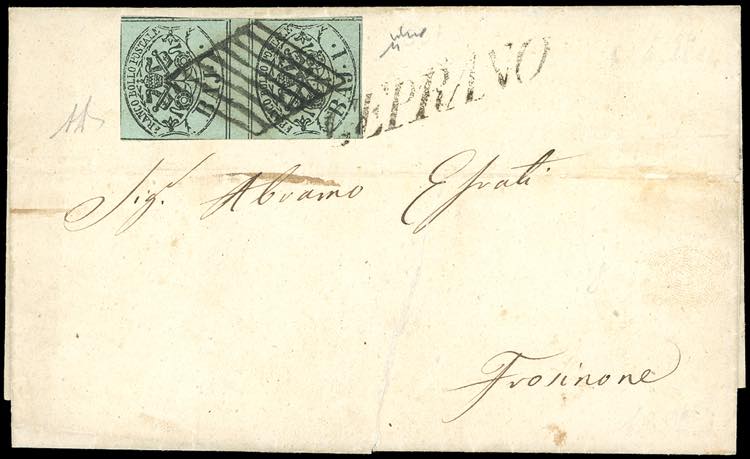 FRANCO BOLLO POSTALE
BAJ
FRANCO BOLLO POSTALE
1 BAJ
CEPRANO
Sig.r Abramo Efrati
Frosinone